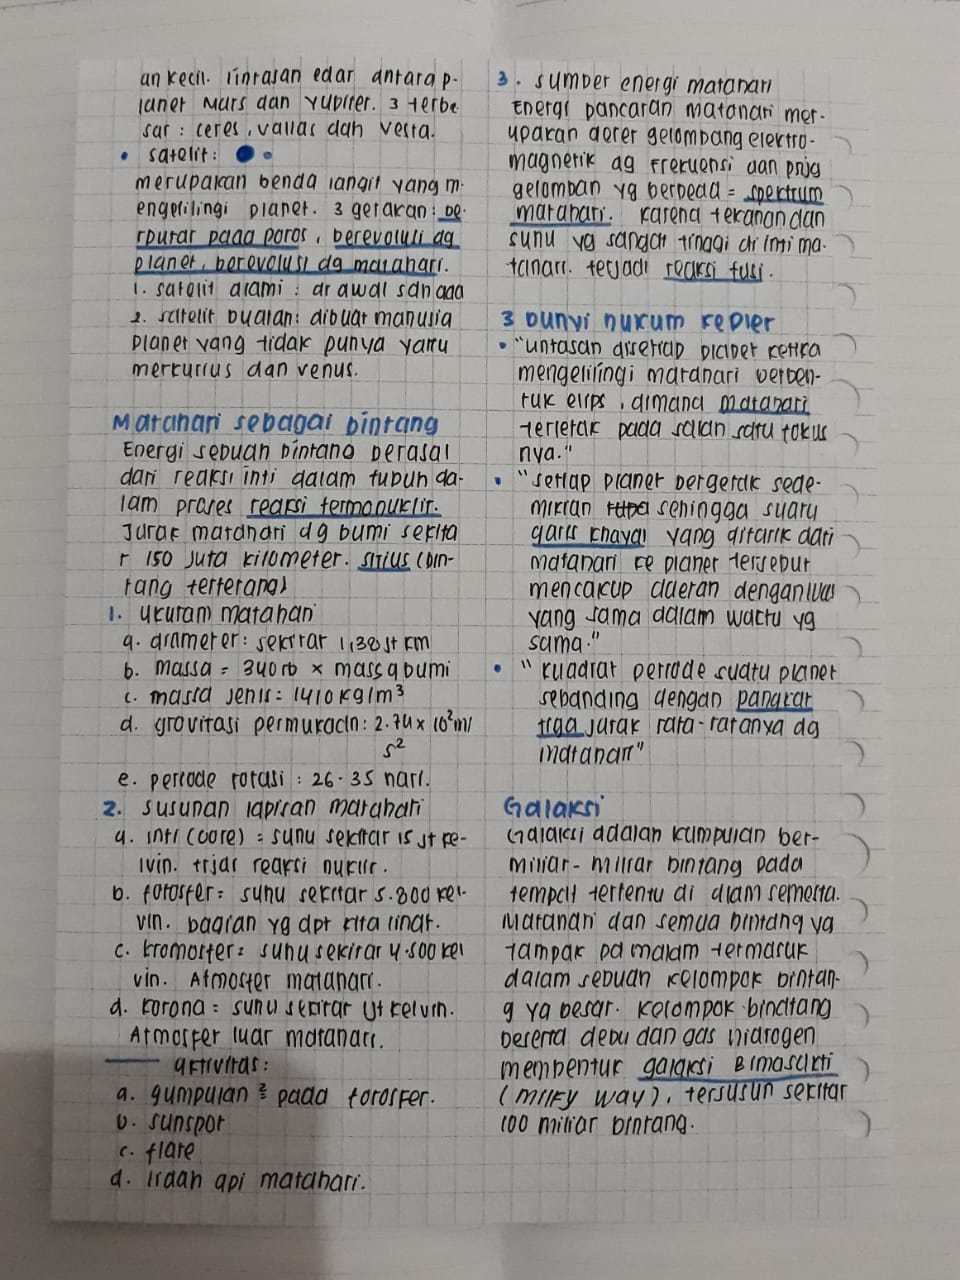 an kecil. lintasan edar antara p-
lanet Mars dan Yupiter. 3 terbe
sar : ceres, vallas dan vesta.
• satelit :
merupakan benda langit yang m-
engelilingi planet. 3 gerakan : be-
rputar pada poros, berevolusi dg
planet, berevolusi dg matahari.
1. satelit alami : dr awal sdh ada
2. satelit buatan : dibuat manusia
planet yang tidak punya yaitu
merkurius dan venus.
Matahari sebagai bintang
Energi sebuah bintang berasal
dari reaksi inti dalam tubuh da-
lam proses reaksi termonuklir.
Jarak matahari dg bumi sekita
r 150 juta kilometer. sirius (bin-
tang terterang)
1. ukuran matahari
a. diameter : sekitar 1,38 jt km
b. massa = 340 rb × massa bumi
c. massa jenis = 1410 kg/m³
d. gravitasi permukaan : 2.74 × 10² m/
s²
e. periode rotasi : 26-35 hari.
2. susunan lapisan matahari
a. inti (core) = suhu sekitar 15 jt ke-
lvin. trjdi reaksi nuklir.
b. fotosfer = suhu sekitar 5.800 kel-
vin. bagian yg dpt kita lihat.
c. kromosfer = suhu sekitar 4.500 kel
vin. Atmosfer matahari.
d. korona = suhu sekitar 1jt kelvin.
Atmosfer luar matahari.
aktivitas :
a. gumpalan ² pada fotosfer.
b. sunspot
c. flare
d. lidah api matahari.
3. sumber energi matahari
Energi pancaran matahari mer-
upakan deret gelombang elektro-
magnetik dg frekuensi dan pnjg
gelomban yg berbeda = spektrum
matahari. Karena tekanan dan
suhu yg sangat tinggi di inti ma-
tahari. terjadi reaksi fusi.
3 bunyi hukum kepler
• "Lintasan disetiap planet ketika
mengelilingi matahari berben-
tuk elips, dimana matahari
terletak pada salah satu fokus
nya."
• "setiap planet bergerak sede-
mikian sehingga suatu
garis khayal yang ditarik dari
matahari ke planet tersebut
mencakup daerah dengan luas
yang sama dalam waktu yg
sama."
• "kuadrat periode suatu planet
sebanding dengan pangkat
tiga jarak rata-ratanya dg
matahari"
Galaksi
Galaksi adalah kumpulan ber-
miliar-miliar bintang pada
tempat tertentu di alam semesta.
Matahari dan semua bintang yg
tampak pd malam termasuk
dalam sebuah kelompok bintan-
g yg besar. Kelompok bindtang
beserta debu dan gas hidrogen
membentuk galaksi Bimasakti
(milky way), tersusun sekitar
100 miliar bintang.